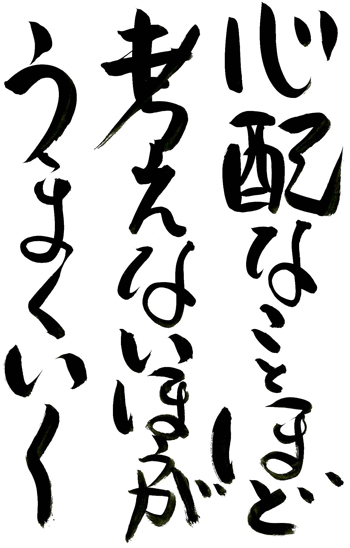 心配なことほど
考えないほうが
うまくいく